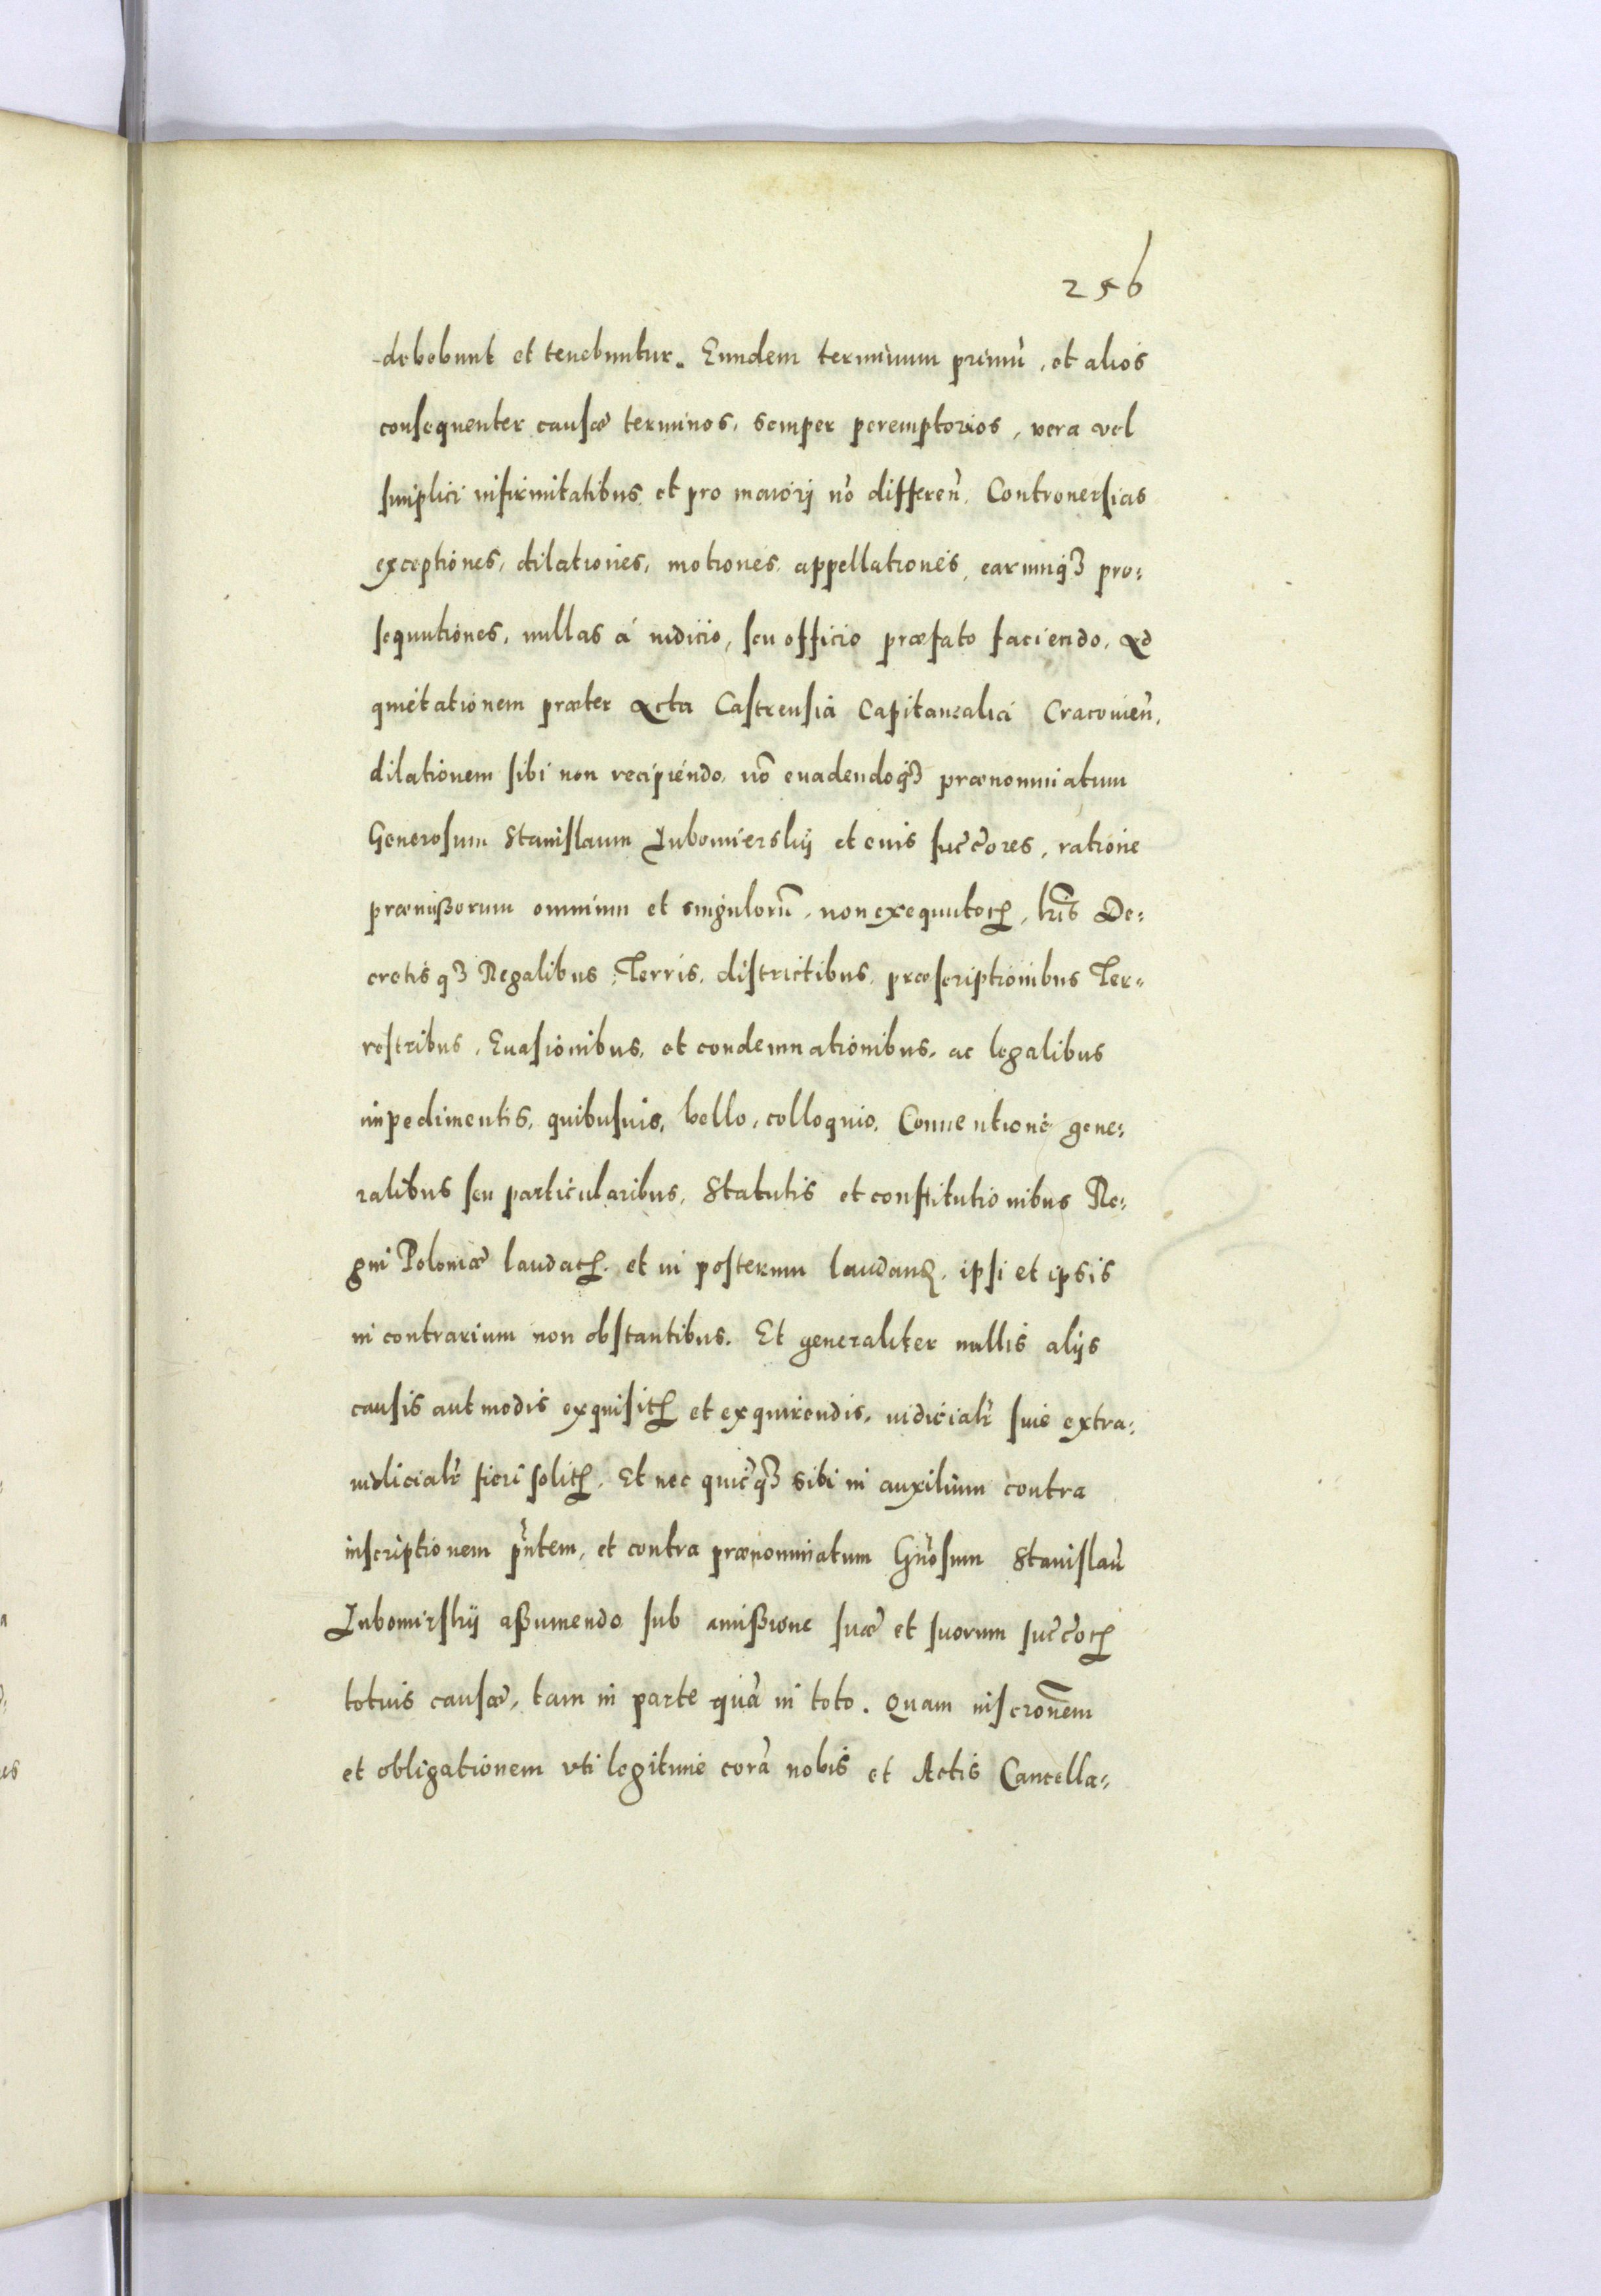 256
debebunt et tenebuntur. Eundem terminum primū, et alios
consequenter causæ terminos, semper peremptorios, vera vel
simplici infirmitatibus et pro maiori nō differeñ. Controuersias
exceptiones, dilationes, motiones, appellationes, earumqꝫ pro:
sequutiones, nullas á iudicio, seu officio præfato faciendo, Ad
quietationem præter Acta Castrensia Capitanealia Cracouieñ,
dilationem sibi non recipiendo, nō euadendoqꝫ prænominatum
Generosum Stanislaum Lubomierskij et eius succ̃ores, ratione
præmißorum omnium et singulorū, non exequutoꝝ, lr̃is De:
cretisqꝫ Regalibus, Terris, districtibus, præscriptionibus Ter=
restribus, Euasionibus, et condemnationibus, ac legalibus
impedimentis, quibusuis, bello, colloquio, Conuentione gene:
ralibus seu particularibus, Statutis et constitutionibus Re:
gni Poloniæ laudatꝫ, et in posterum laudanꝫ, ipsi et ipsis
in contrarium non obstantibus. Et generaliter nullis alijs
causis aut modis exquisitꝫ et exquirendis, iudicialr̃ siue extra:
iudicialr̃ fieri solitꝫ. Et nec quic̃qꝫ sibi in auxilium contra
inscriptionem pñtem, et contra prænominatum Gñosum Stanislaū
Lubomirskij aßumendo sub amißione suæ et suorum succ̃oꝝ
totius causæ, tam in parte quā in toto. Quam inscrōnem
et obligationem vti legitime corā nobis et Actis Cancella=